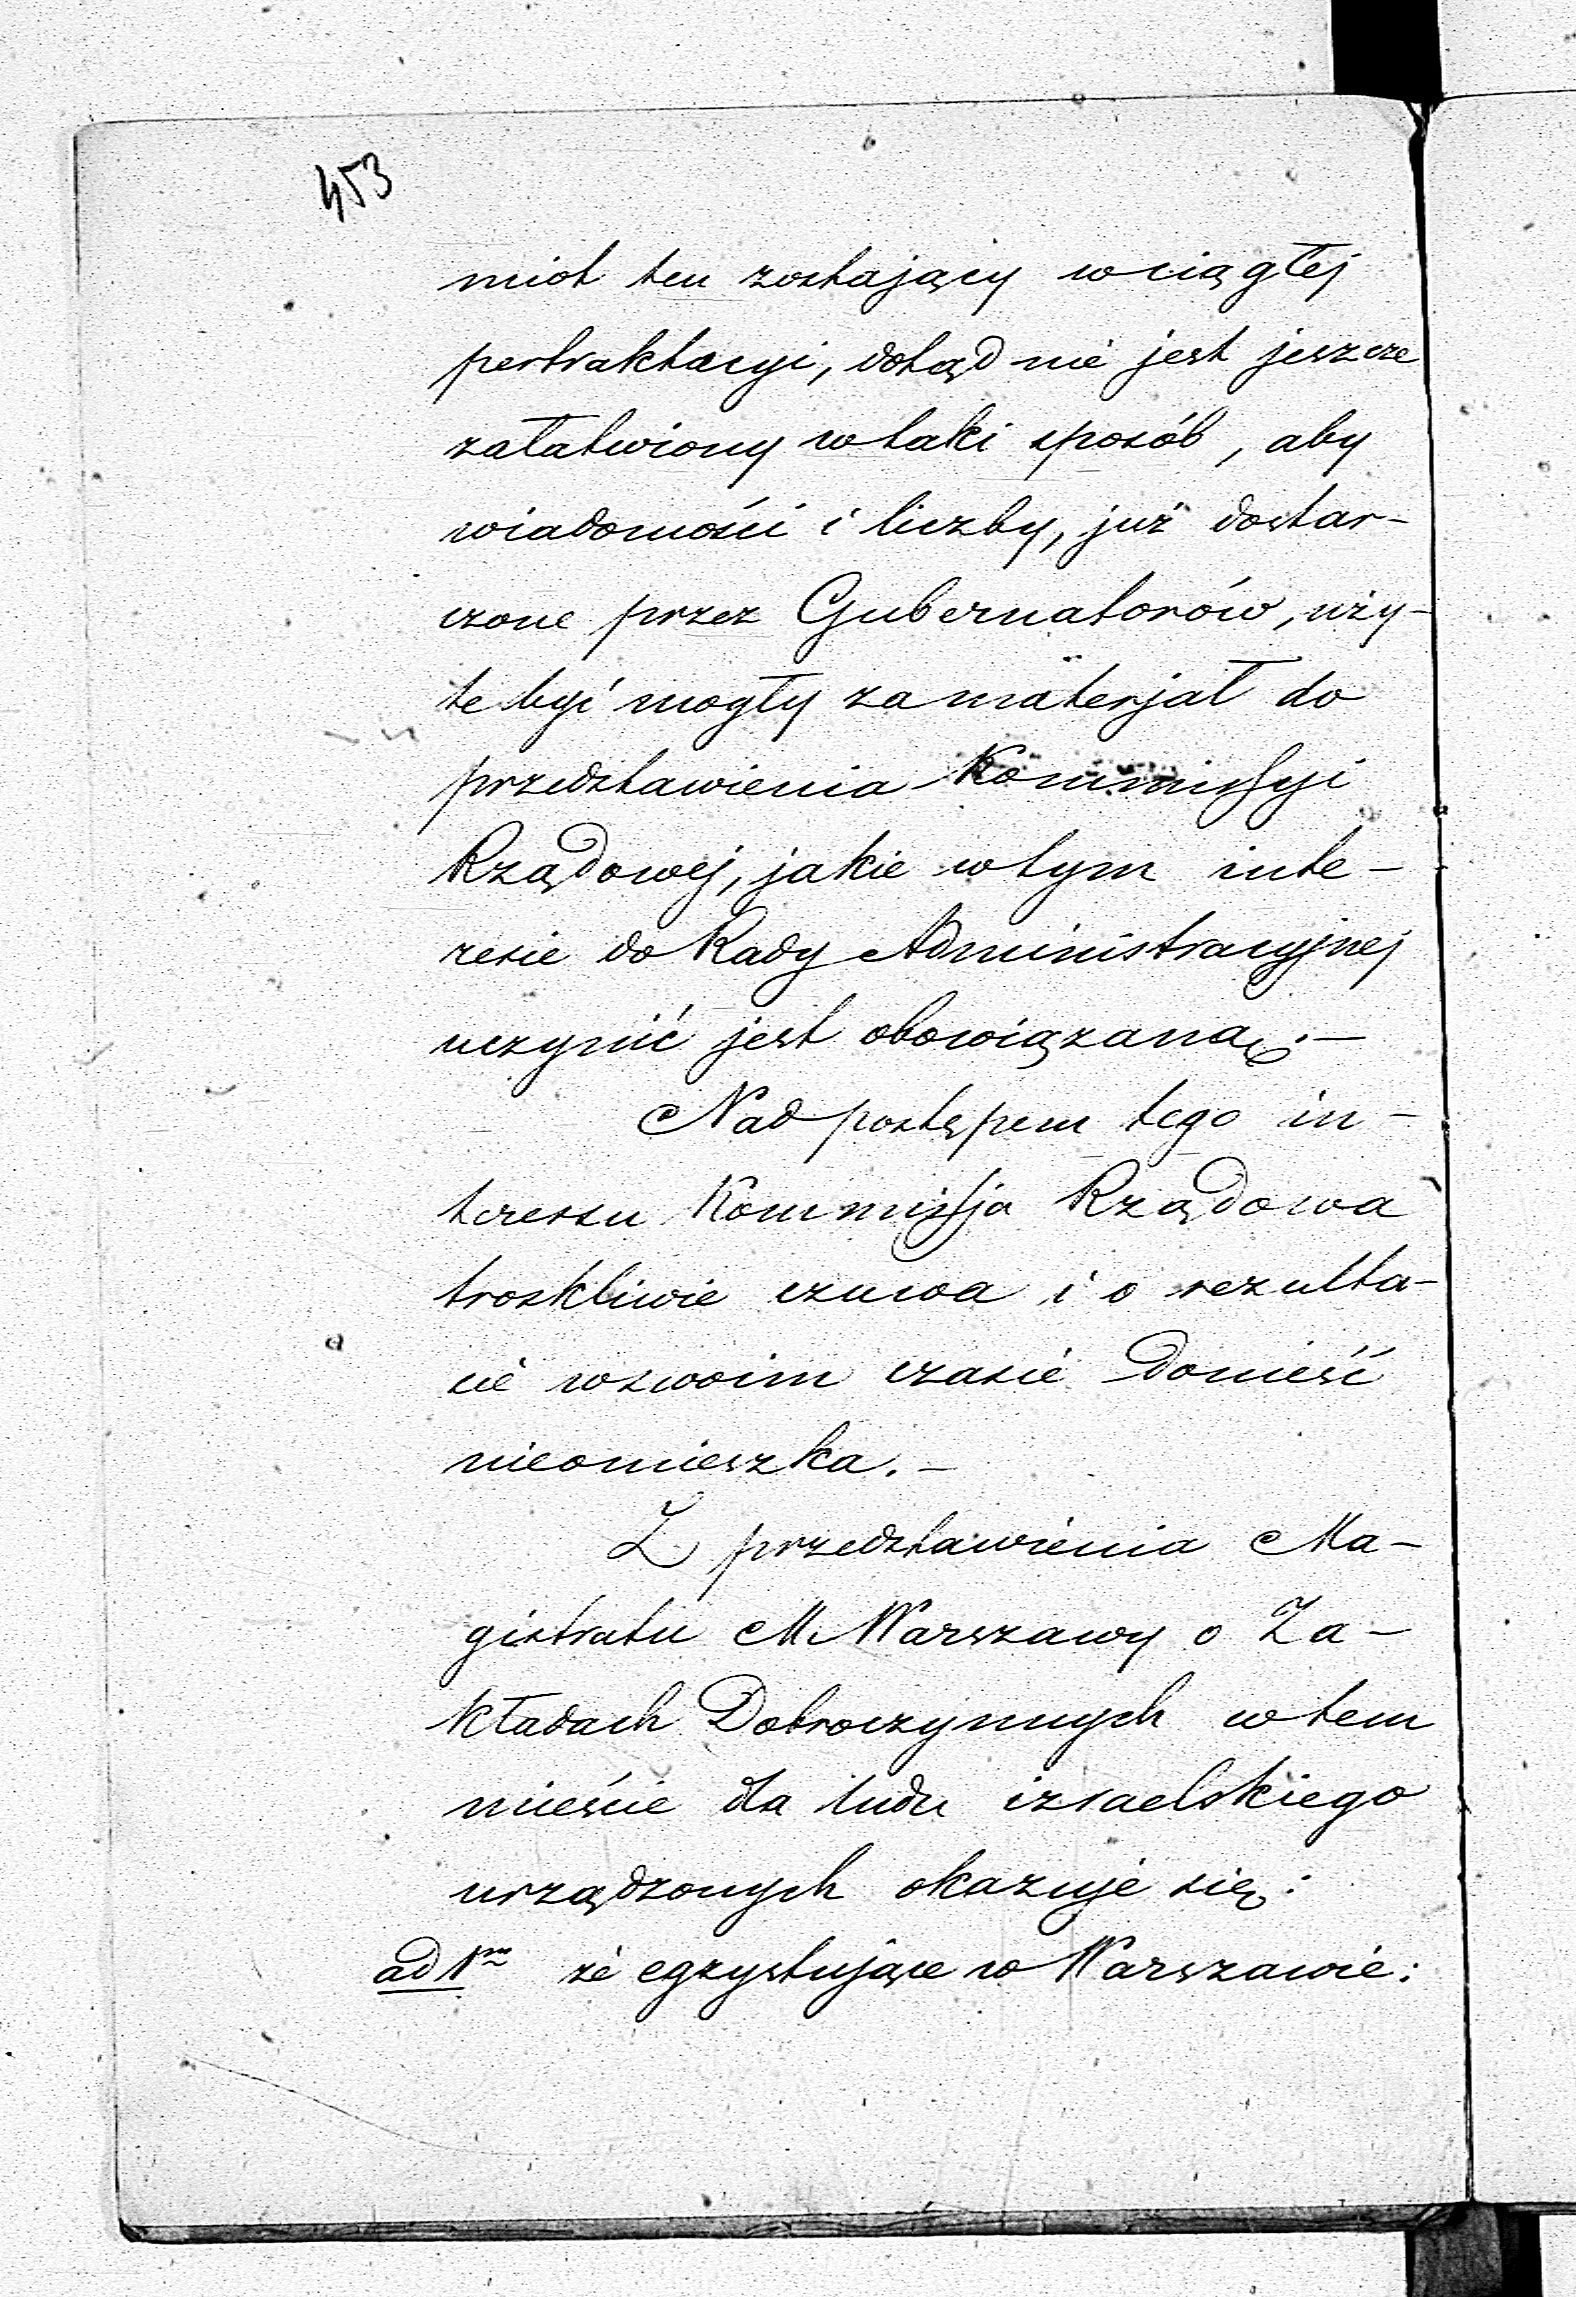 453
miot ten zostający w ciągłej
pertraktacyi, dotąd nie jest jeszcze
załatwiony w taki sposób, aby
wiadomości i liczby, już dostar-
czone przez Gubernatorów, uży-
te być mogły za materjał do
przedstawienia Kommissyi
Rządowej, jakie w tym inte-
resie do Rady Administracyjnej
uczynić jest obowiązaną.—
Nad postępem tego in-
teressu Kommissja Rządowa
troskliwie czuwa i o rezulta-
cie w swoim czasie donieść
nieomieszka.—
Z przedstawienia Ma-
gistratu M. Warszawy o Za-
kładach Dobroczynnych w tem
mieście dla ludu izraelskiego
urządzonych okazuje się:
ad 1m że egzystujące w Warszawie: